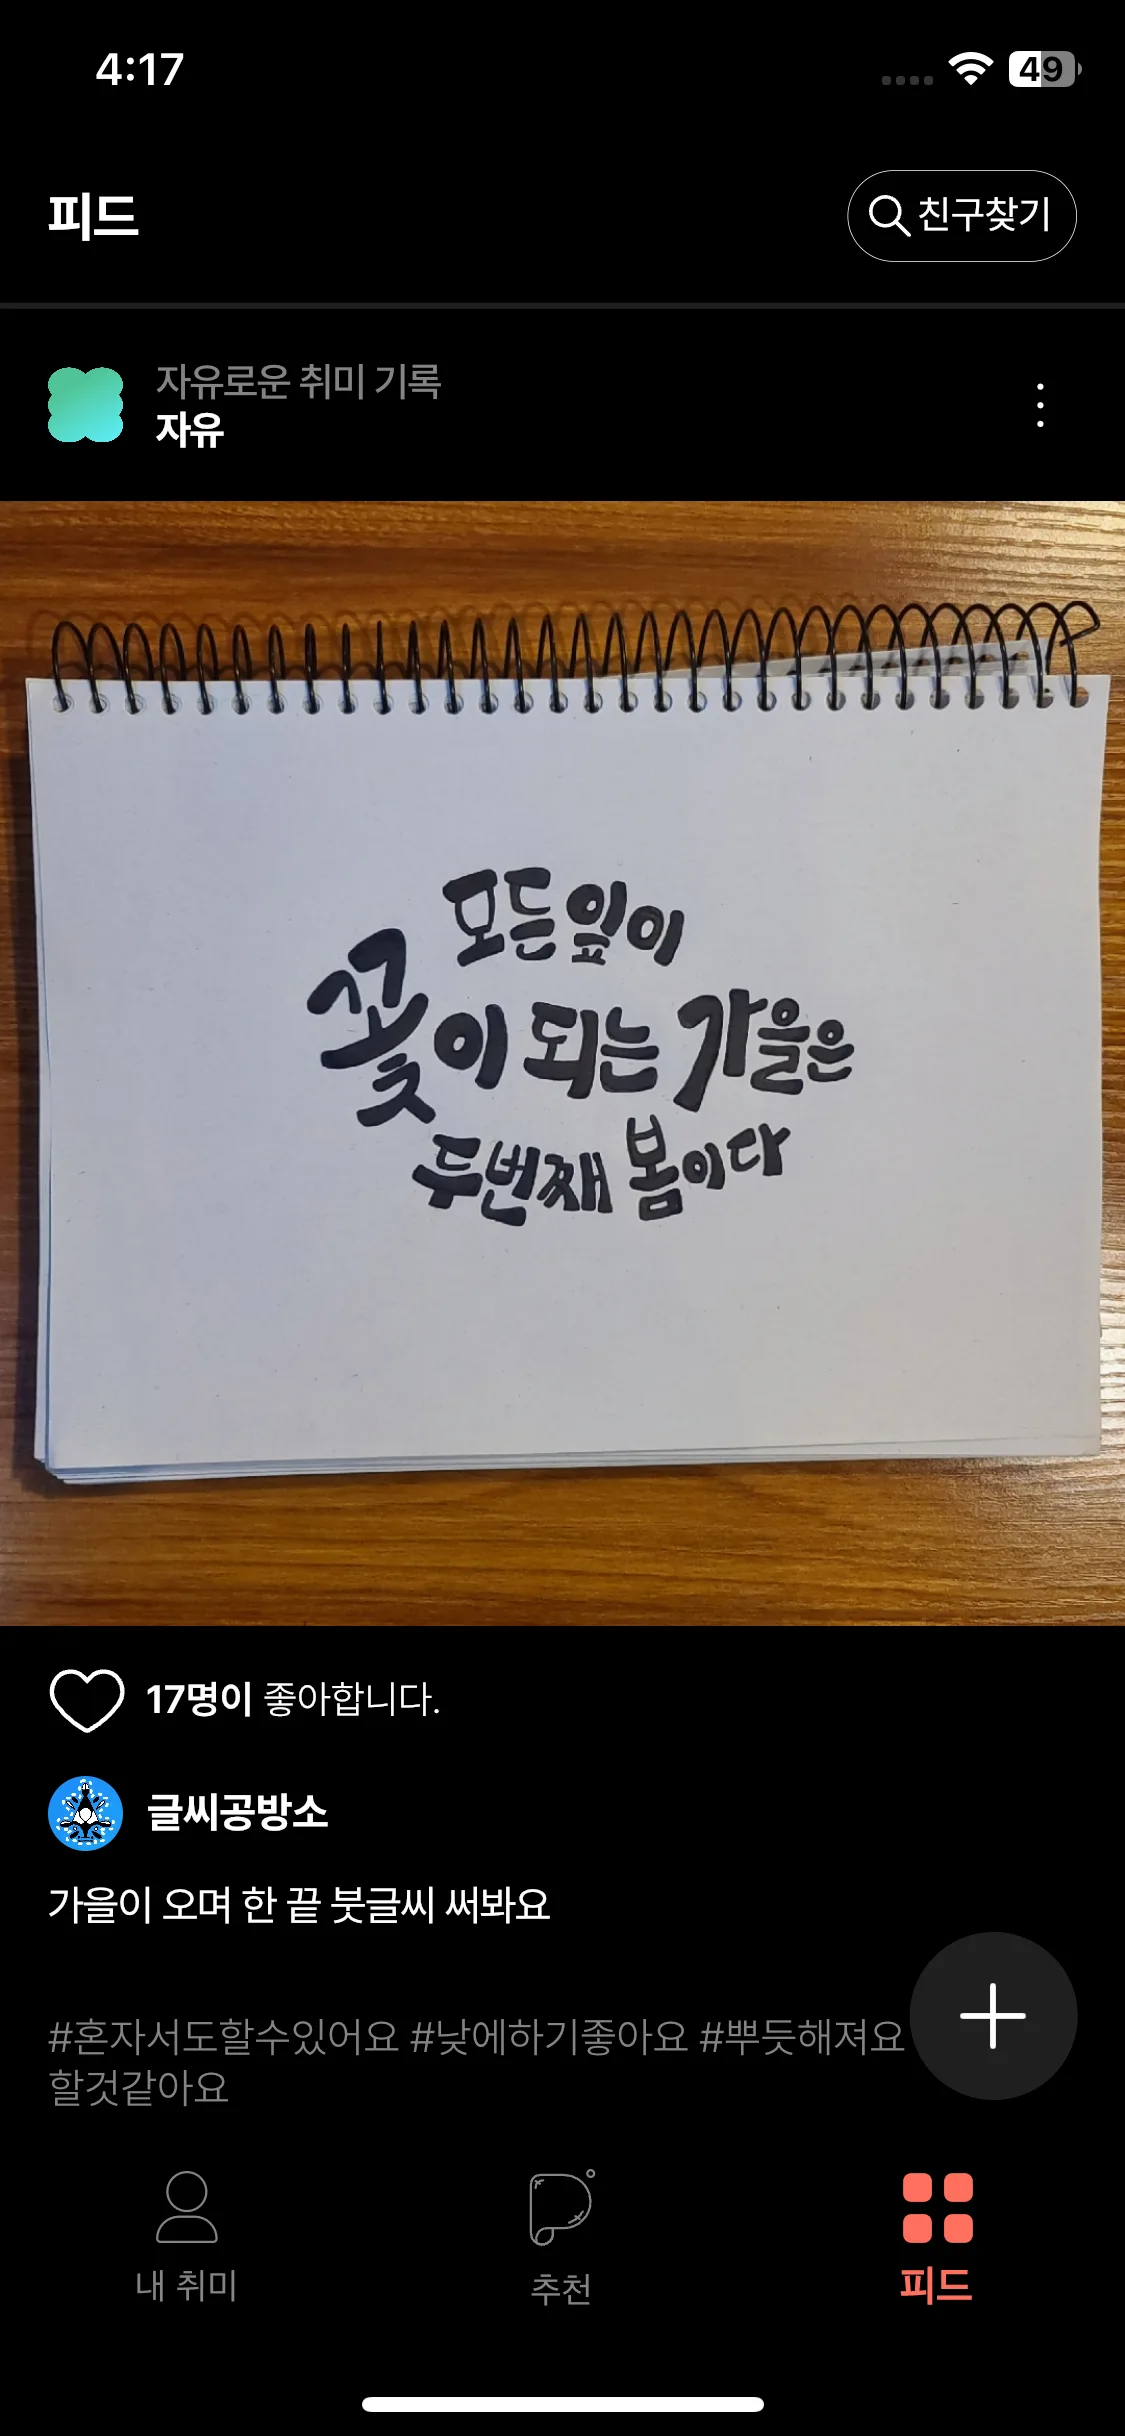 4:17
49
피드
친구찾기
자유로운 취미 기록
자유
모든잎이
꽃이 되는 가을은
두번째 봄이다
17명이 좋아합니다.
글씨공방소
가을이 오며 한 끝 붓글씨 써봐요
#혼자서도할수있어요 #낮에하기좋아요 #뿌듯해져요
할것같아요
내 취미
추천
피드